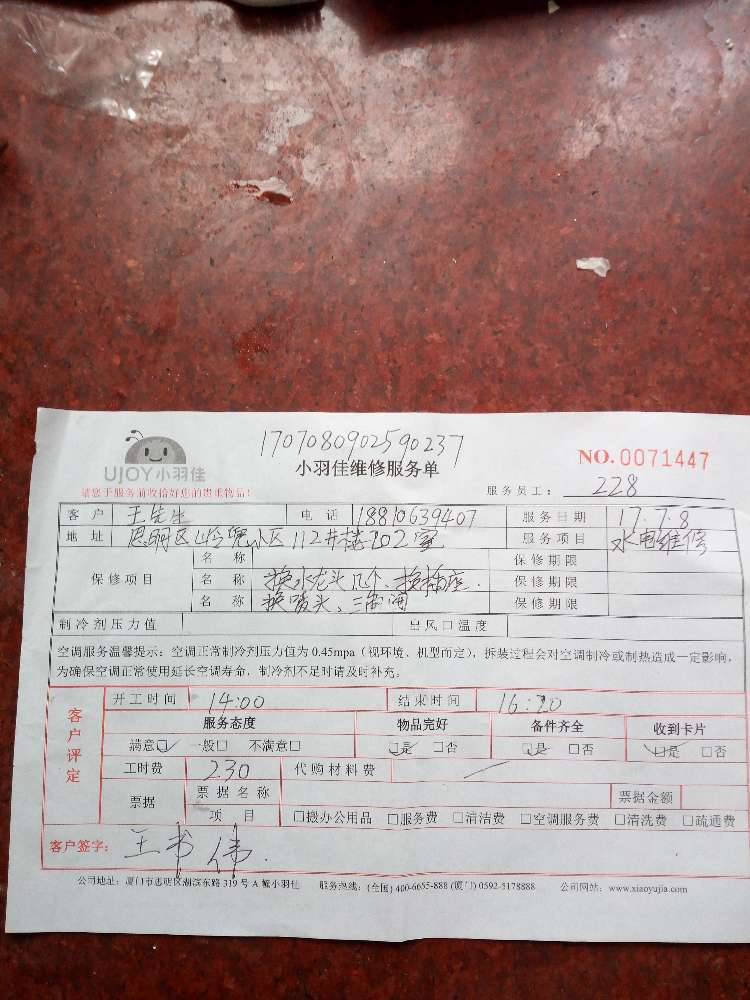 1707080902590237
UJOY小羽佳
小羽佳维修服务单
NO.0071447
请您于服务前收拾好您的贵重物品!
服务员工: 228
客户 王先生 电话 18810639407 服务日期 17.7.8
地址 思明区 小区112井楼702室 服务项目 水电维修
名称 保修期限
保修项目 名称 换水龙头 个、换插座. 保修期限
名称 换喷头、三角阀 保修期限
制冷剂压力值 出风口温度
空调服务温馨提示:空调正常制冷剂压力值为 0.45mpa(视环境、机型而定),拆装过程会对空调制冷或制热造成一定影响,
为确保空调正常使用延长空调寿命,制冷剂不足时请及时补充。
客户评定
开工时间 14:00 结束时间 16:20
服务态度 物品完好 备件齐全 收到卡片
满意☑ 一般□ 不满意□ ☑是 □否 ☑是 □否 ☑是 □否
工时费 230 代购材料费
票据 票据名称 票据金额
项目 □搬办公用品 □服务费 □清洁费 □空调服务费 □清洗费 □疏通费
客户签字: 王书伟.
公司地址:厦门市思明区湖滨东路 319 号 A 幢小羽佳 服务热线:(全国) 400-6655-888 (厦门) 0592-5178888 公司网站:www.xiaoyujia.com